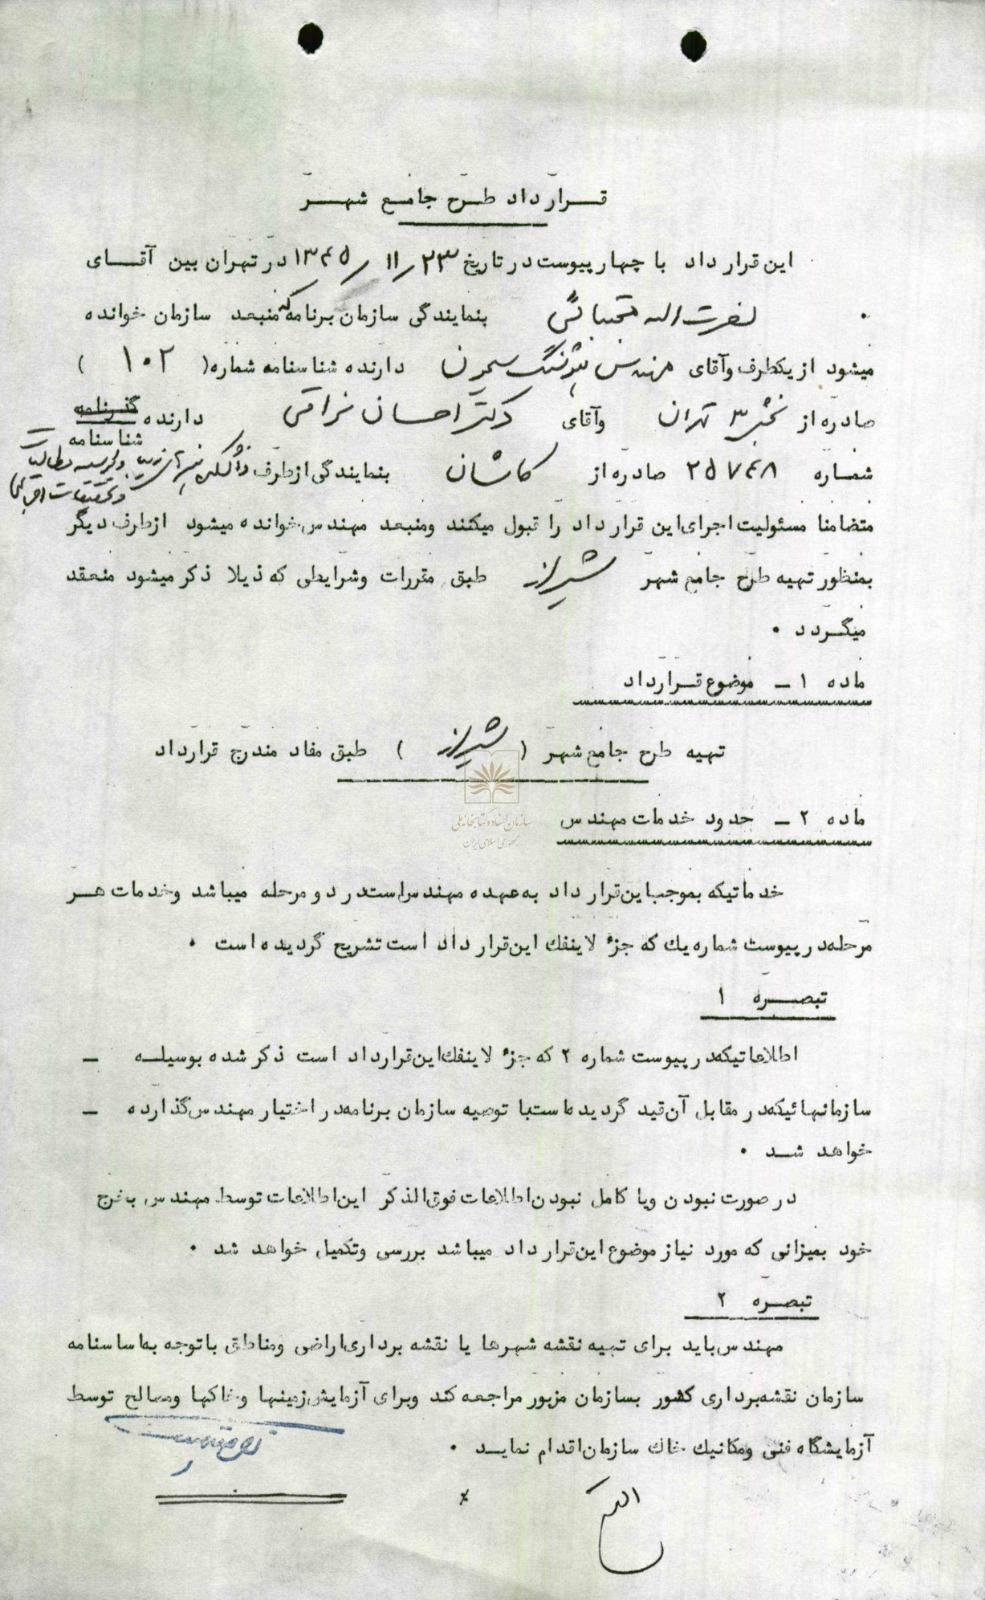 قرارداد طرح جامع شهر
این قرار داد با چهار پیوست در تاریخ ۲۳/ ۱۱/ ۱۳۴۵ در تهران بین آقای
نصرت اله بنمایندگی سازمان برنامه که منبعد سازمان خوانده
میشود از یکطرف وآقای مهندس هوشنگ سیحون دارنده شناسنامه شماره ( ۱۰۲ )
صادره از بخش ۳ تهران وآقای دکتر احسان نراقی دارنده گذرنامه
شناسنامه
شماره ۲۵۷۴۸ صادره از کاشان بنمایندگی از طرف دانشکده هنرهای زیبا و مؤسسه مطالعات
و تحقیقات اجتماعی
متضامنا مسئولیت اجرای این قرار داد را قبول میکنند ومنبعد مهندس خوانده میشود از طرف دیگر
بمنظور تهیه طرح جامع شهر شیراز طبق مقررات وشرایطی که ذیلا ذکر میشود منعقد
میگردد ۰
ماده ۱ ـ موضوع قرارداد
تهیه طرح جامع شهر ( شیراز ) طبق مفاد مندرج قرارداد
سازمان اسناد و کتابخانه ملی
جمهوری اسلامی ایران
ماده ۲ ـ حدود خدمات مهندس
خدماتیکه بموجب این قرار داد به عهده مهندس است در دو مرحله میباشد وخدمات هر
مرحله در پیوست شماره یک که جزء لاینفک این قرار داد است تشریح گردیده است ۰
تبصره ۱
اطلاعاتیکه در پیوست شماره ۲ که جزء لاینفک این قرارداد است ذکر شده بوسیله ـ
سازمانهائیکه در مقابل آن قید گردیده است با توصیه سازمان برنامه در اختیار مهندس گذارده ـ
خواهد شد ۰
در صورت نبودن ویا کامل نبودن اطلاعات فوق الذکر این اطلاعات توسط مهندس بخرج
خود بمیزانی که مورد نیاز موضوع این قرار داد میباشد بررسی وتکمیل خواهد شد ۰
تبصره ۲
مهندس باید برای تهیه نقشه شهرها یا نقشه برداری اراضی ومناطق با توجه به اساسنامه
سازمان نقشه برداری کشور بسازمان مزبور مراجعه کند وبرای آزمایش زمینها وخاکها ومصالح توسط
آزمایشگاه فنی ومکانیک خاک سازمان اقدام نماید ۰